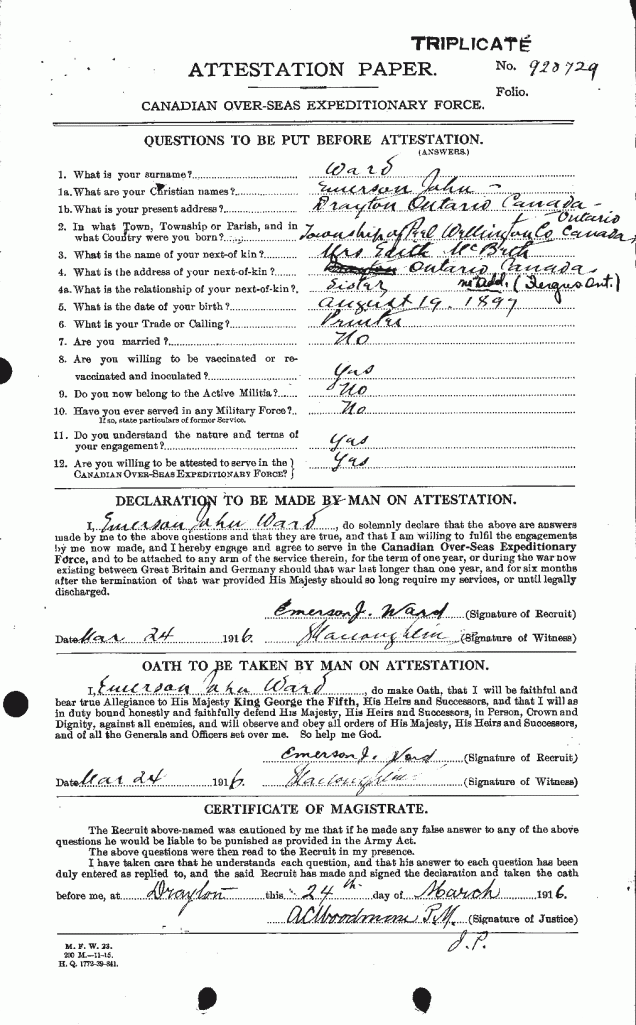 TRIPLICATE
ATTESTATION PAPER.
No. 928729
Folio.
CANADIAN OVER-SEAS EXPEDITIONARY FORCE.
QUESTIONS TO BE PUT BEFORE ATTESTATION.
(ANSWERS.)
1. What is your surname? Ward
1a. What are your Christian names? Emerson John -
1b. What is your present address? Drayton Ontario Canada -
2. In what Town, Township or Parish, and in what Country were you born? Township of Peel Wellington Co Ontario Canada
3. What is the name of your next-of-kin? Mrs Edith McBeth
4. What is the address of your next-of-kin? Drayton Ontario Canada
4a. What is the relationship of your next-of-kin? Sister (Fergus Ont.)
5. What is the date of your birth? August 19. 1897
6. What is your Trade or Calling? Printer
7. Are you married? No
8. Are you willing to be vaccinated or re-
vaccinated and inoculated? Yes
9. Do you now belong to the Active Militia? No
10. Have you ever served in any Military Force? No
If so, state particulars of former Service.
11. Do you understand the nature and terms of
your engagement? Yes
12. Are you willing to be attested to serve in the
CANADIAN OVER-SEAS EXPEDITIONARY FORCE? Yes
DECLARATION TO BE MADE BY MAN ON ATTESTATION.
I, Emerson John Ward, do solemnly declare that the above are answers
made by me to the above questions and that they are true, and that I am willing to fulfil the engagements
by me now made, and I hereby engage and agree to serve in the Canadian Over-Seas Expeditionary
Force, and to be attached to any arm of the service therein, for the term of one year, or during the war now
existing between Great Britain and Germany should that war last longer than one year, and for six months
after the termination of that war provided His Majesty should so long require my services, or until legally
discharged.
Emerson J. Ward (Signature of Recruit)
Date Mar 24 1916. (Signature of Witness)
OATH TO BE TAKEN BY MAN ON ATTESTATION.
I, Emerson John Ward, do make Oath, that I will be faithful and
bear true Allegiance to His Majesty King George the Fifth, His Heirs and Successors, and that I will as
in duty bound honestly and faithfully defend His Majesty, His Heirs and Successors, in Person, Crown and
Dignity, against all enemies, and will observe and obey all orders of His Majesty, His Heirs and Successors,
and of all the Generals and Officers set over me. So help me God.
Emerson J. Ward (Signature of Recruit)
Date Mar 24 1916. (Signature of Witness)
CERTIFICATE OF MAGISTRATE.
The Recruit above-named was cautioned by me that if he made any false answer to any of the above
questions he would be liable to be punished as provided in the Army Act.
The above questions were then read to the Recruit in my presence.
I have taken care that he understands each question, and that his answer to each question has been
duly entered as replied to, and the said Recruit has made and signed the declaration and taken the oath
before me, at Drayton this 24th day of March 1916.
P.M. (Signature of Justice)
J.P.
M. F. W. 23.
200 M.-11-15.
H. Q. 1772-39-841.